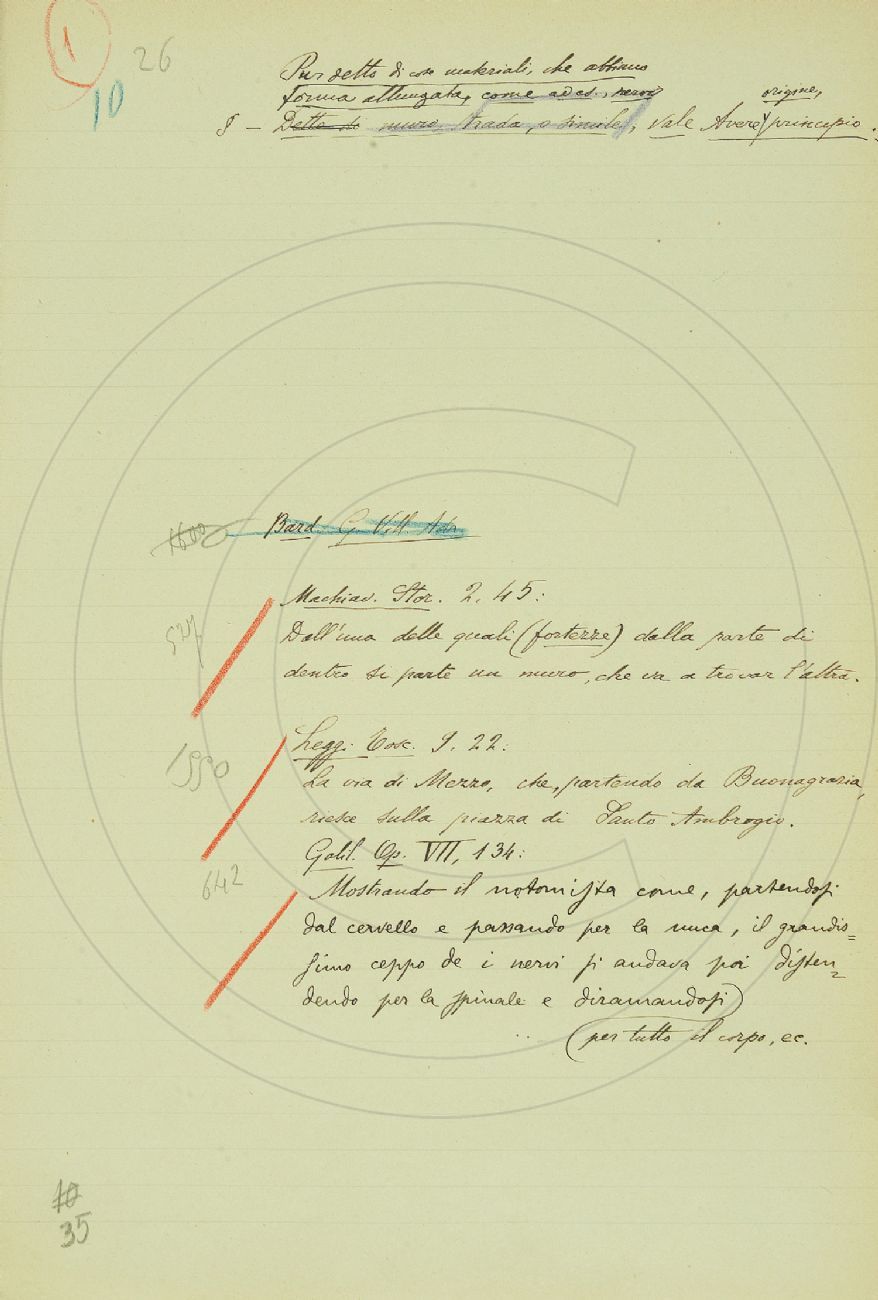 1
26
10
Pur detto di cose materiali, che abbiano
forma allungata, come ad es. nervo
origine,
§ — Detto di muro, strada, o simile, vale Avere principio.
1600 Bard. G. Vill. Ado
527
Machiav. Stor. 2. 45:
Dall'una delle quali (fortezze) dalla parte di
dentro si parte un muro, che va a trovar l'altra.
1550
Legg. Tosc. I. 22:
La via di Mezzo, che, partendo da Buonagrazia,
riesce sulla piazza di Santo Ambrogio.
642
Galil. Op. VII, 134:
Mostrando il notomiſta come, partendoſi
dal cervello e passando per la nuca, il grandis=
ſimo ceppo de i nervi ſi andava poi diſten=
dendo per la ſpinale e diramandoſi
(per tutto il corpo, ec.
10
35